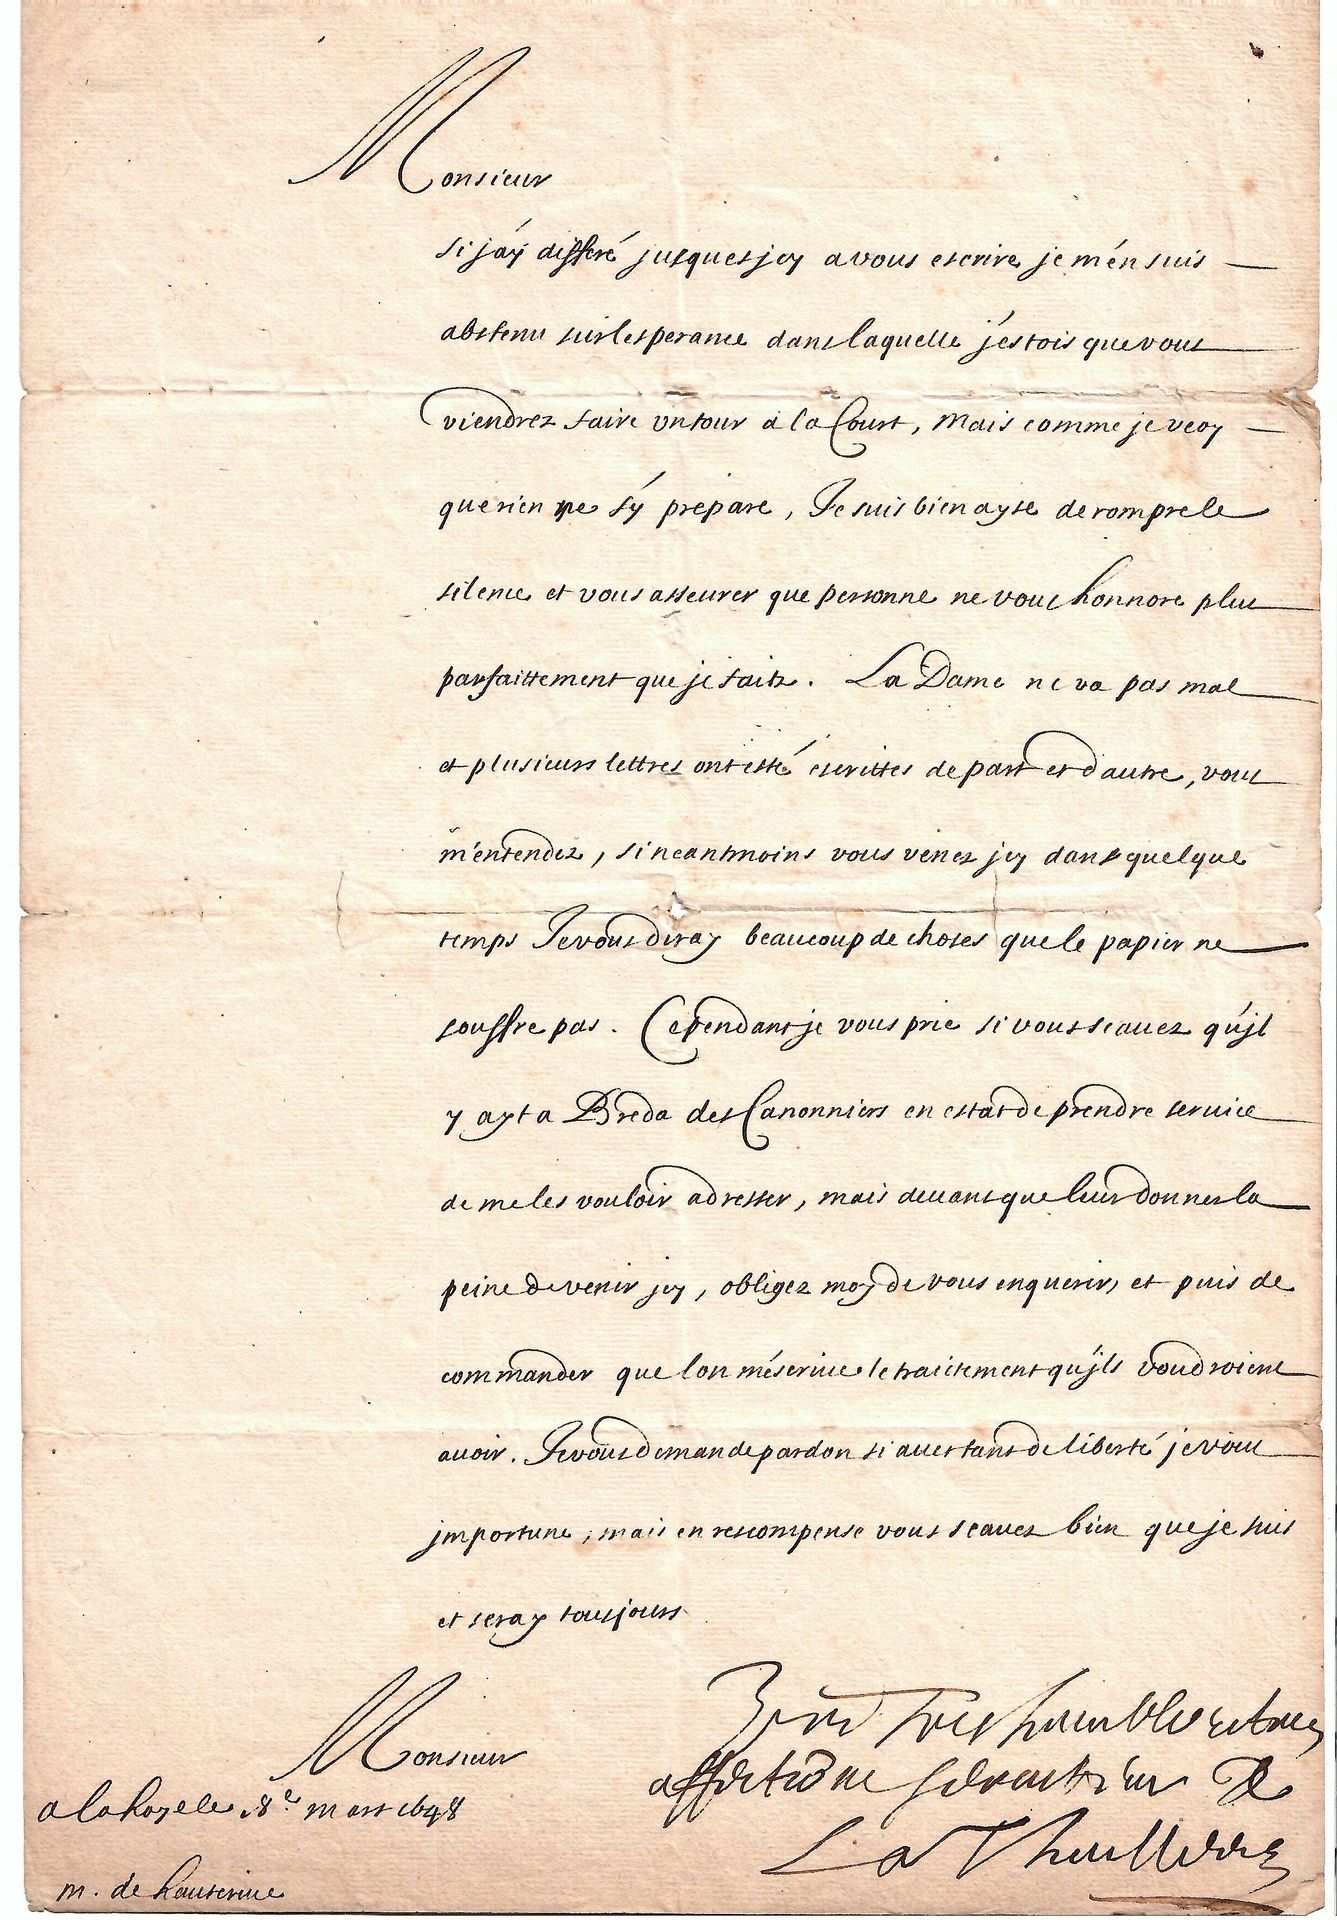 Monsieur
si j'ay differé jusques jcy a vous escrire je m'en suis
abstenu sur lesperance dans laquelle j'estois que vous
viendrez faire un tour a la Court, mais comme je veoy
que rien ne s'y prepare, Je suis bien ayse de rompre le
silence et vous asseurer que personne ne vous honnore plus
parfaittement que je faits. La Dame ne va pas mal
et plusieurs lettres ont esté escrittes de part et d'autre, vous
m'entendez, si neantmoins vous venez jcy dans quelque
temps Je vous diray beaucoup de choses que le papier ne
souffre pas. Cependant je vous prie si vous scauez qu'jl
y ayt a Breda des Canonniers en estat de prendre seruice
de me les vouloir adresser, mais deuant que leur donner la
peine de venir jcy, obligez moy de vous enquerir, et puis de
commander que lon m'escriue le traictement qu'jls voudroient
auoir. Je vous demande pardon si auec tant de liberté je vous
jmportune, mais en rescompense vous scauez bien que je suis
et seray tousjours
Monsieur
Vre tres humble et tres
affectionné seruiteur De
La Thuillerie
a la haye le 8e mars 1648
m. de hauteriue